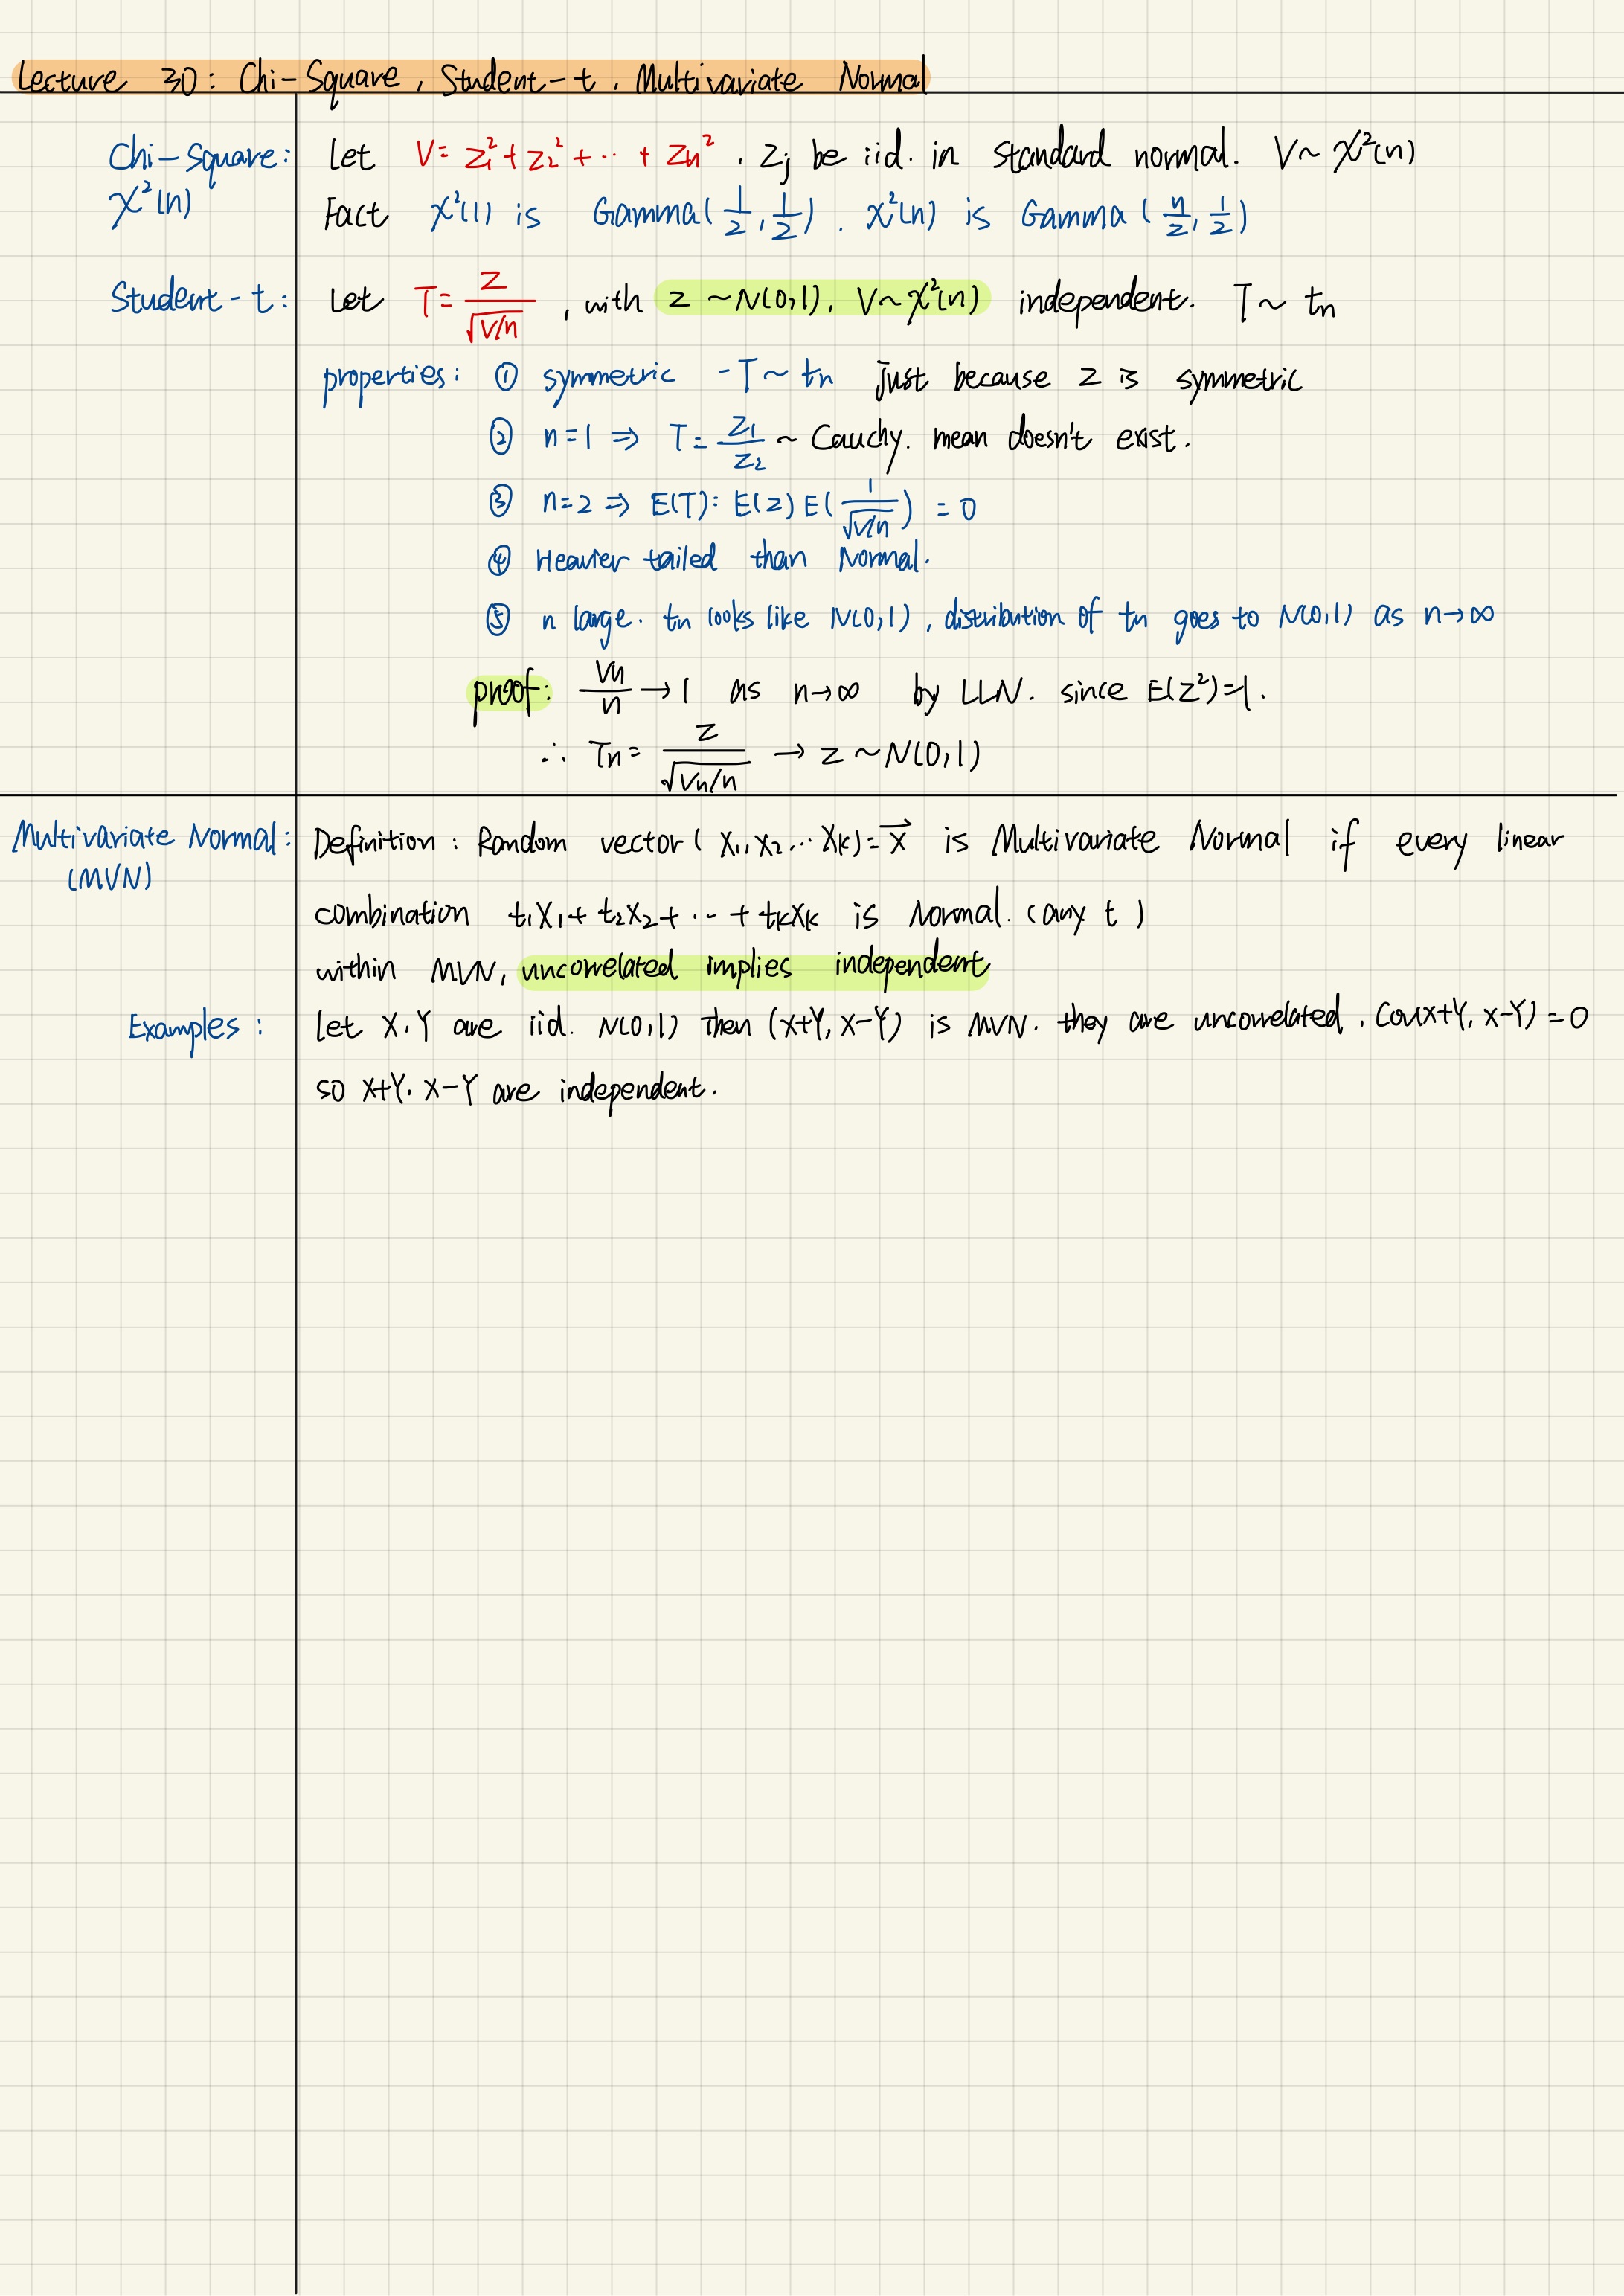 Lecture 30: Chi-Square, Student-t, Multivariate Normal
Chi-Square: Let V = Z₁² + Z₂² + ··· + Zn². Zj be iid. in standard normal. V ~ χ²(n)
χ²(n) Fact χ²(1) is Gamma(1/2, 1/2). χ²(n) is Gamma(n/2, 1/2)
Student-t: Let T = Z / √(V/n), with Z ~ N(0,1), V ~ χ²(n) independent. T ~ tn
properties: ① symmetric -T ~ tn just because Z is symmetric
② n=1 ⇒ T = Z₁/Z₂ ~ Cauchy. mean doesn't exist.
③ n=2 ⇒ E(T): E(Z)E(1/√(V/n)) = 0
④ Heavier tailed than Normal.
⑤ n large. tn looks like N(0,1), distribution of tn goes to N(0,1) as n→∞
proof: Vn/n → 1 as n→∞ by LLN. since E(Z²)=1.
∴ Tn = Z / √(Vn/n) → Z ~ N(0,1)
Multivariate Normal: Definition: Random vector (X₁, X₂, ··· Xk) = X⃗ is Multivariate Normal if every linear
(MVN)
combination t₁X₁ + t₂X₂ + ··· + tkXk is Normal. (any t)
within MVN, uncorrelated implies independent
Examples: Let X, Y are iid. N(0,1) then (X+Y, X-Y) is MVN. they are uncorrelated. Cov(X+Y, X-Y) = 0
so X+Y, X-Y are independent.